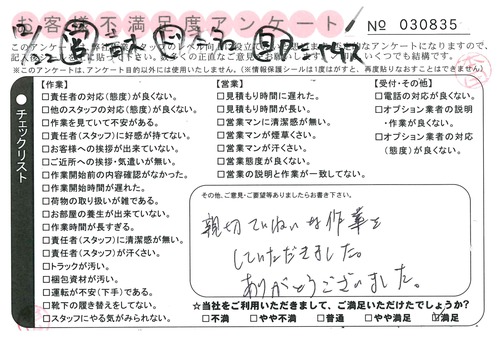 お客様不満足度アンケート
№ 030835
※このアンケートは、アンケート目的以外には使用いたしません。(※情報保護シールは1度はがすと、再度貼りなおすことはできません。)
チェックリスト
【作業】
□責任者の対応(態度)が良くない。
□他のスタッフの対応(態度)が良くない。
□作業を見ていて不安がある。
□責任者(スタッフ)に好感が持てない。
□お客様への挨拶が出来ていない。
□ご近所への挨拶・気遣いが無い。
□作業開始前の内容確認がなかった。
□作業開始時間が遅れた。
□荷物の取り扱いが雑である。
□お部屋の養生が出来ていない。
□作業時間が長すぎる。
□責任者(スタッフ)に清潔感が無い。
□責任者(スタッフ)が汗くさい。
□トラックが汚い。
□梱包資材が汚い。
□運転が不安(下手)である。
□靴下の履き替えをしてない。
□スタッフにやる気がみられない。
【営業】
□見積もり時間に遅れた。
□見積もり時間が長い。
□営業マンに清潔感が無い。
□営業マンが煙草くさい。
□営業マンが汗くさい。
□営業態度が良くない。
□営業の説明と作業が一致してない。
【受付・その他】
□電話の対応が良くない。
□オプション業者の説明・作業が良くない。
□オプション業者の対応(態度)が良くない。
その他、ご意見・ご要望等ありましたらお書き下さい。
親切ていねいな作業を
していただきました。
ありがとうございました。
☆当社をご利用いただきまして、ご満足いただけたでしょうか?
□不満 □やや不満 □普通 □やや満足 ☑満足